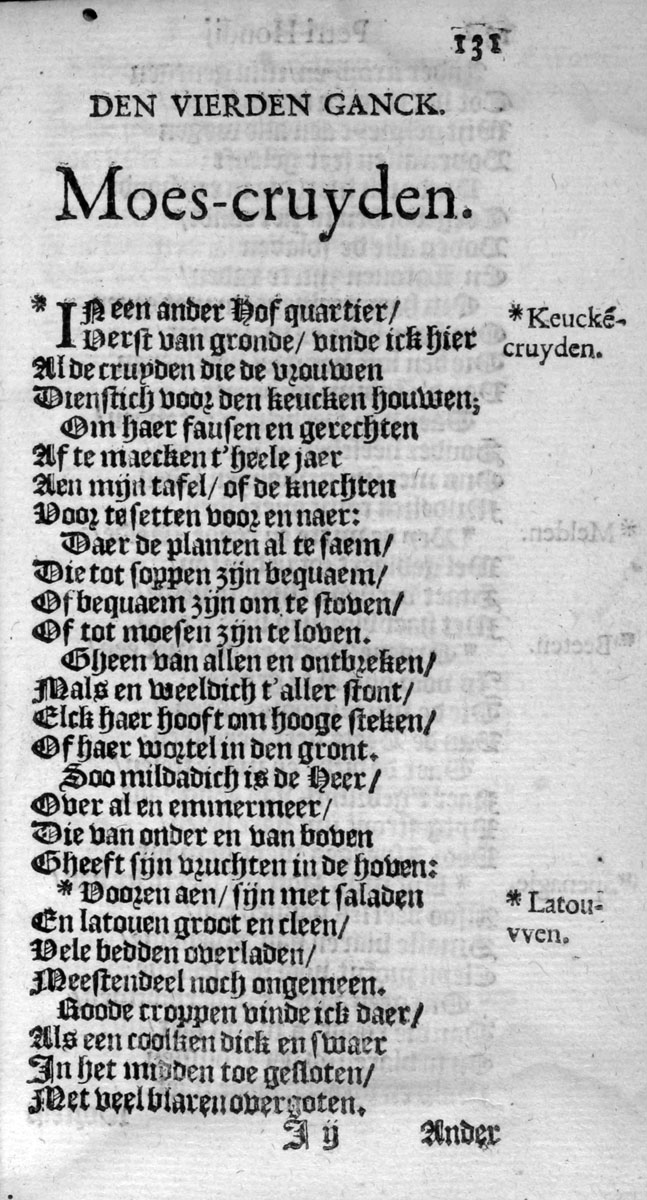 131
DEN VIERDEN GANCK.
Moes-cruyden.
* IN een ander Hof quartier/
Verst van gronde/ vinde ick hier
Al de cruyden die de vrouwen
Dienstich voor den keucken houwen;
Om haer sausen en gerechten
Af te maecken t'heele jaer
Aen mijn tafel/ of de knechten
Voor te setten voor en naer:
Daer de planten al te saem/
Die tot soppen zijn bequaem/
Of bequaem zijn om te stoven/
Of tot moesen zijn te loven.
Gheen van allen en ontbreken/
Mals en weeldich t'aller stont/
Elck haer hooft om hooge steken/
Of haer wortel in den gront.
Soo mildadich is de Heer/
Over al en emmermeer/
Die van onder en van boven
Gheeft sijn vruchten in de hoven:
* Vooren aen/ sijn met saladen
En latouen groot en cleen/
Vele bedden overladen/
Meestendeel noch ongemeen.
Roode croppen vinde ick daer/
Als een coolken dick en swaer
In het midden toe gesloten/
Met veel blaren overgoten.
I ij Ander
* Keuckē-
cruyden.
* Latou-
vven.